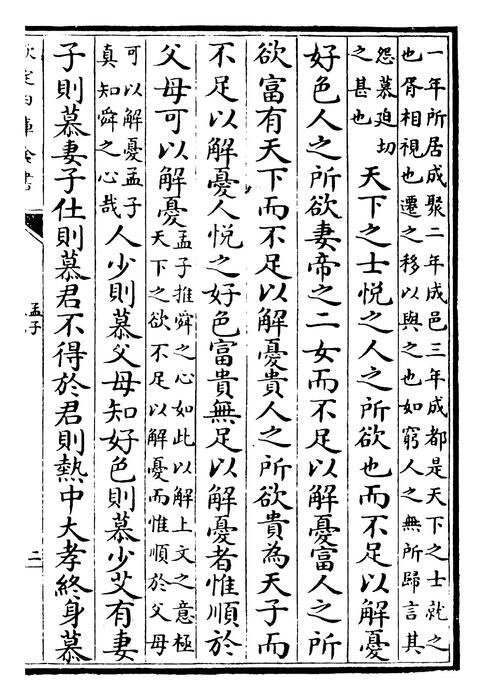 一年所居成聚二年成邑三年成都是天下之士就之
也胥相視也遷之移以與之也如窮人之無所歸言其
怨慕迫切
之甚也
天下之士悅之人之所欲也而不足以解憂
好色人之所欲妻帝之二女而不足以解憂富人之所
欲富有天下而不足以解憂貴人之所欲貴為天子而
不足以解憂人悅之好色富貴無足以解憂者惟順於
父母可以解憂
孟子推舜之心如此以解上文之意極
天下之欲不足以解憂而惟順於父母
可以解憂孟子
真知舜之心哉
人少則慕父母知好色則慕少艾有妻
子則慕妻子仕則慕君不得於君則熱中大孝終身慕
孟子
二